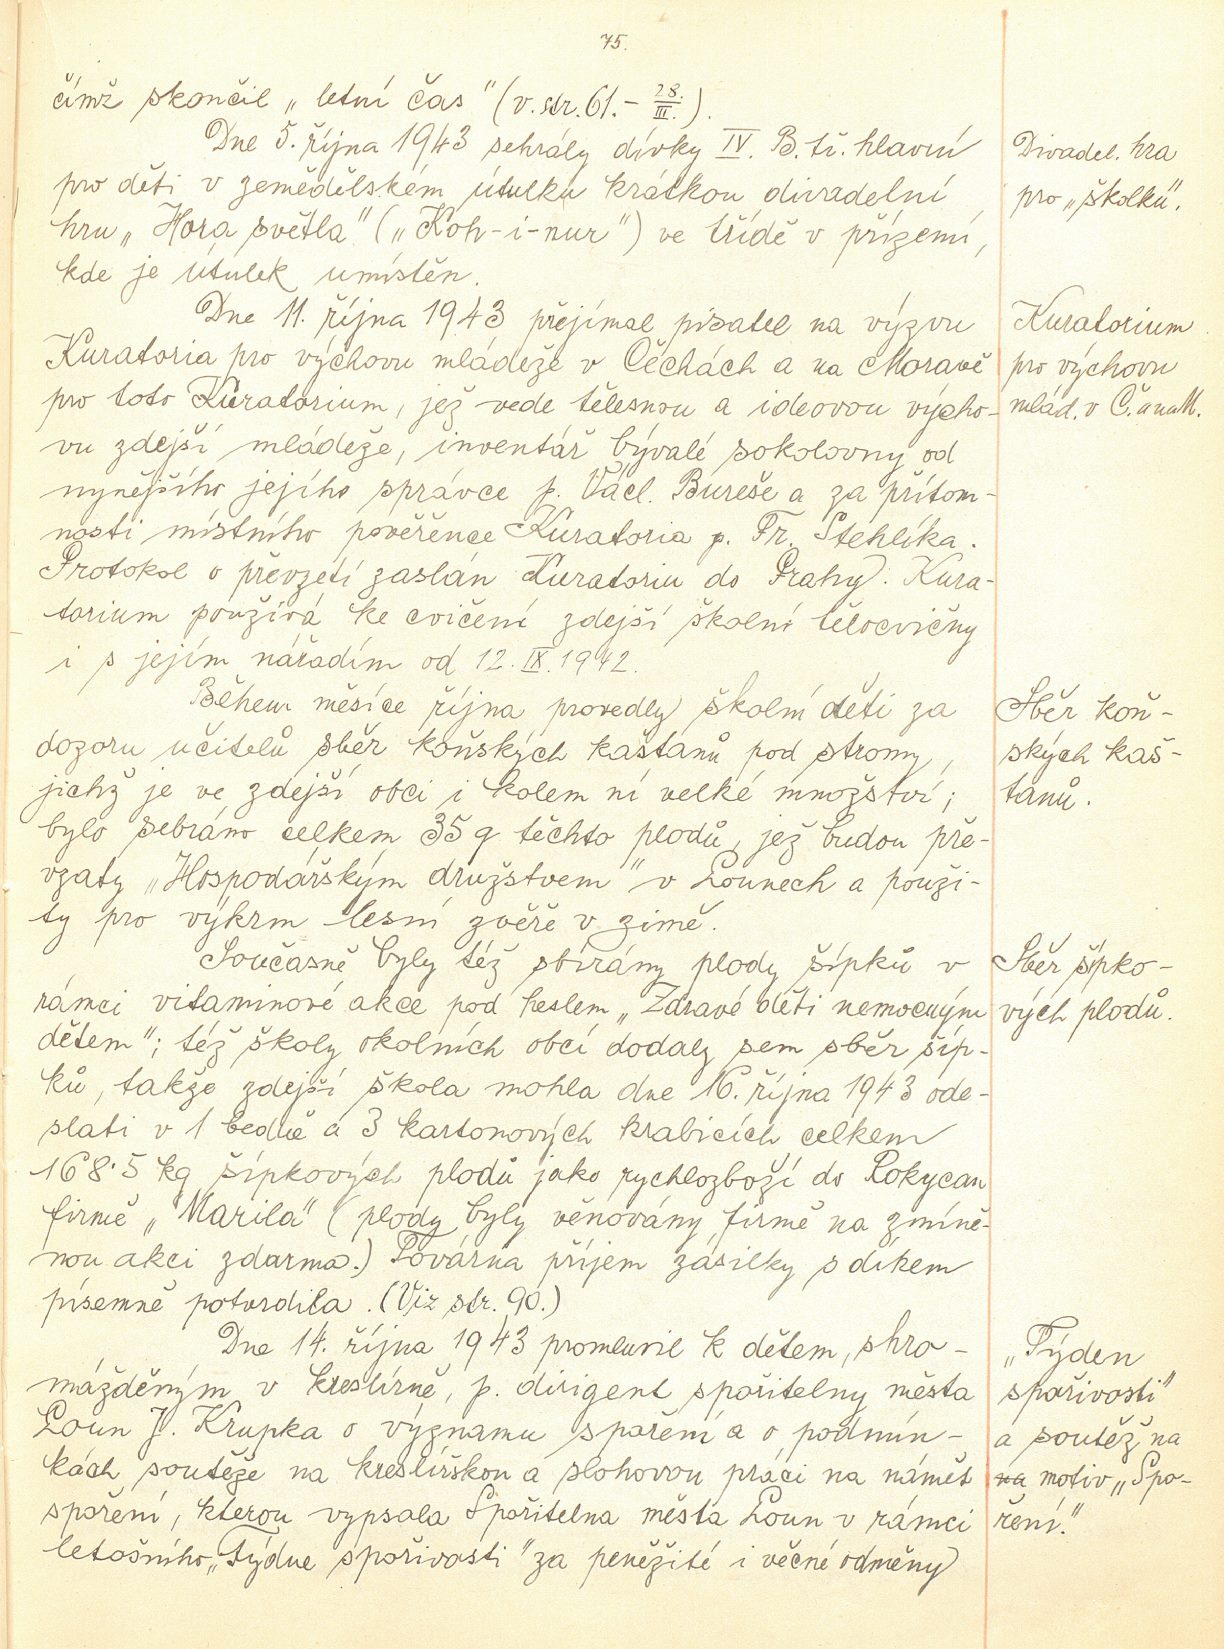 75.
čímž skončil „letní čas" (v. str. 61. – 28./III.).
Dne 5. října 1943 sehrály dívky IV. B. tř. hlavní
pro děti v zemědělském útulku krátkou divadelní
hru „Hora světla" („Koh-i-nur") ve třídě v přízemí,
kde je útulek umístěn.
Divadel. hra
pro „školku".
Dne 11. října 1943 přejímal pisatel na výzvu
Kuratoria pro výchovu mládeže v Čechách a na Moravě
pro toto Kuratorium, jež vede tělesnou a ideovou výcho-
vu zdejší mládeže, inventář bývalé sokolovny od
nynějšího jejího správce p. Václ. Bureše a za přítom-
nosti místního pověřence Kuratoria p. Fr. Stehlíka.
Protokol o převzetí zaslán Kuratoriu do Prahy. Kura-
torium používá ke cvičení zdejší školní tělocvičny
i s jejím nářadím od 12. IX. 1942.
Kuratorium
pro výchovu
mlád. v Č. a na M.
Během měsíce října provedly školní děti za
dozoru učitelů sběr koňských kaštanů pod stromy,
jichž je ve zdejší obci i kolem ní velké množství;
bylo sebráno celkem 35 q těchto plodů, jež budou pře-
vzaty „Hospodářským družstvem" v Lounech a použi-
ty pro výkrm lesní zvěře v zimě.
Sběr koň-
ských kaš-
tanů.
Současně byly též sbírány plody šípků v
rámci vitaminové akce pod heslem „Zdravé děti nemocným
dětem"; též školy okolních obcí dodaly sem sběr šíp-
ků, takže zdejší škola mohla dne 16. října 1943 ode-
slati v 1 bedně a 3 kartonových krabicích celkem
168·5 kg šípkových plodů jako rychlozboží do Rokycan
firmě „Marila" (plody byly věnovány firmě na zmíně-
nou akci zdarma.) Továrna příjem zásilky s díkem
písemně potvrdila. (Viz str. 90.)
Sběr šípko-
vých plodů.
Dne 14. října 1943 promluvil k dětem, shro-
mážděným v kreslírně, p. dirigent spořitelny města
Loun J. Krupka o významu spoření a o podmín-
kách soutěže na kreslířskou a slohovou práci na námět
spoření, kterou vypsala Spořitelna města Loun v rámci
letošního „Týdne spořivosti" za peněžité i věcné odměny
„Týden
spořivosti"
a soutěž na
na motiv „Spo-
ření."